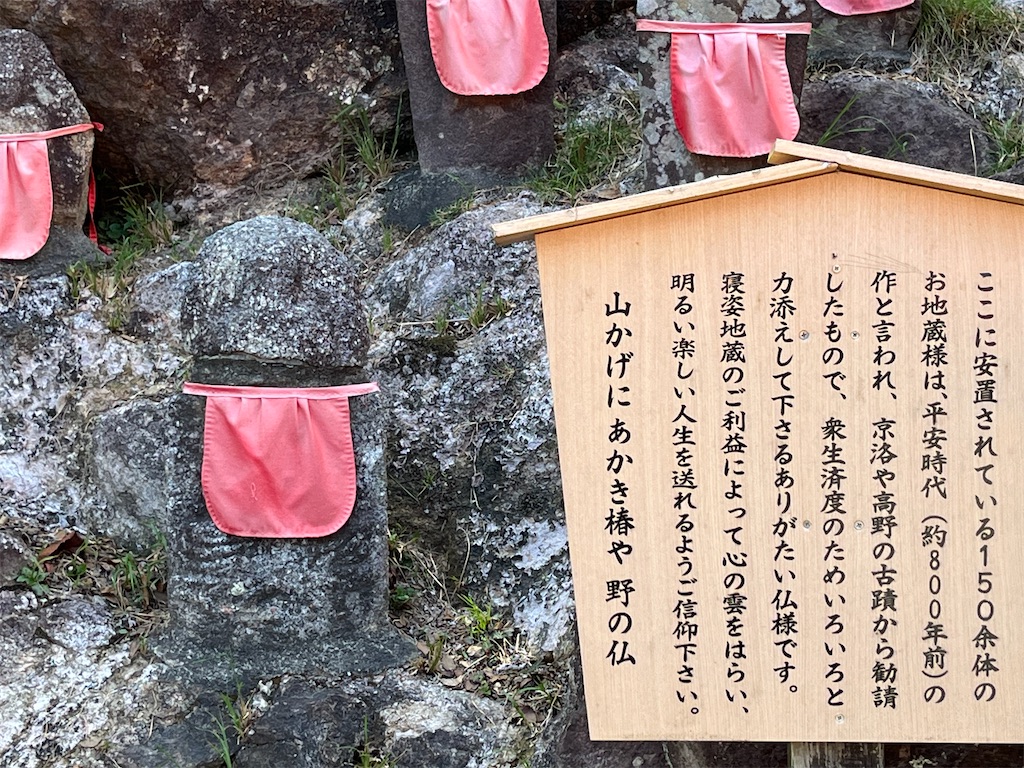 ここに安置されている150余体の
お地蔵様は、平安時代（約800年前）の
作と言われ、京洛や高野の古蹟から勧請
したもので、衆生済度のためいろいろと
力添えして下さるありがたい仏様です。
寝姿地蔵のご利益によって心の雲をはらい、
明るい楽しい人生を送れるようご信仰下さい。
山かげにあかき椿や 野の仏